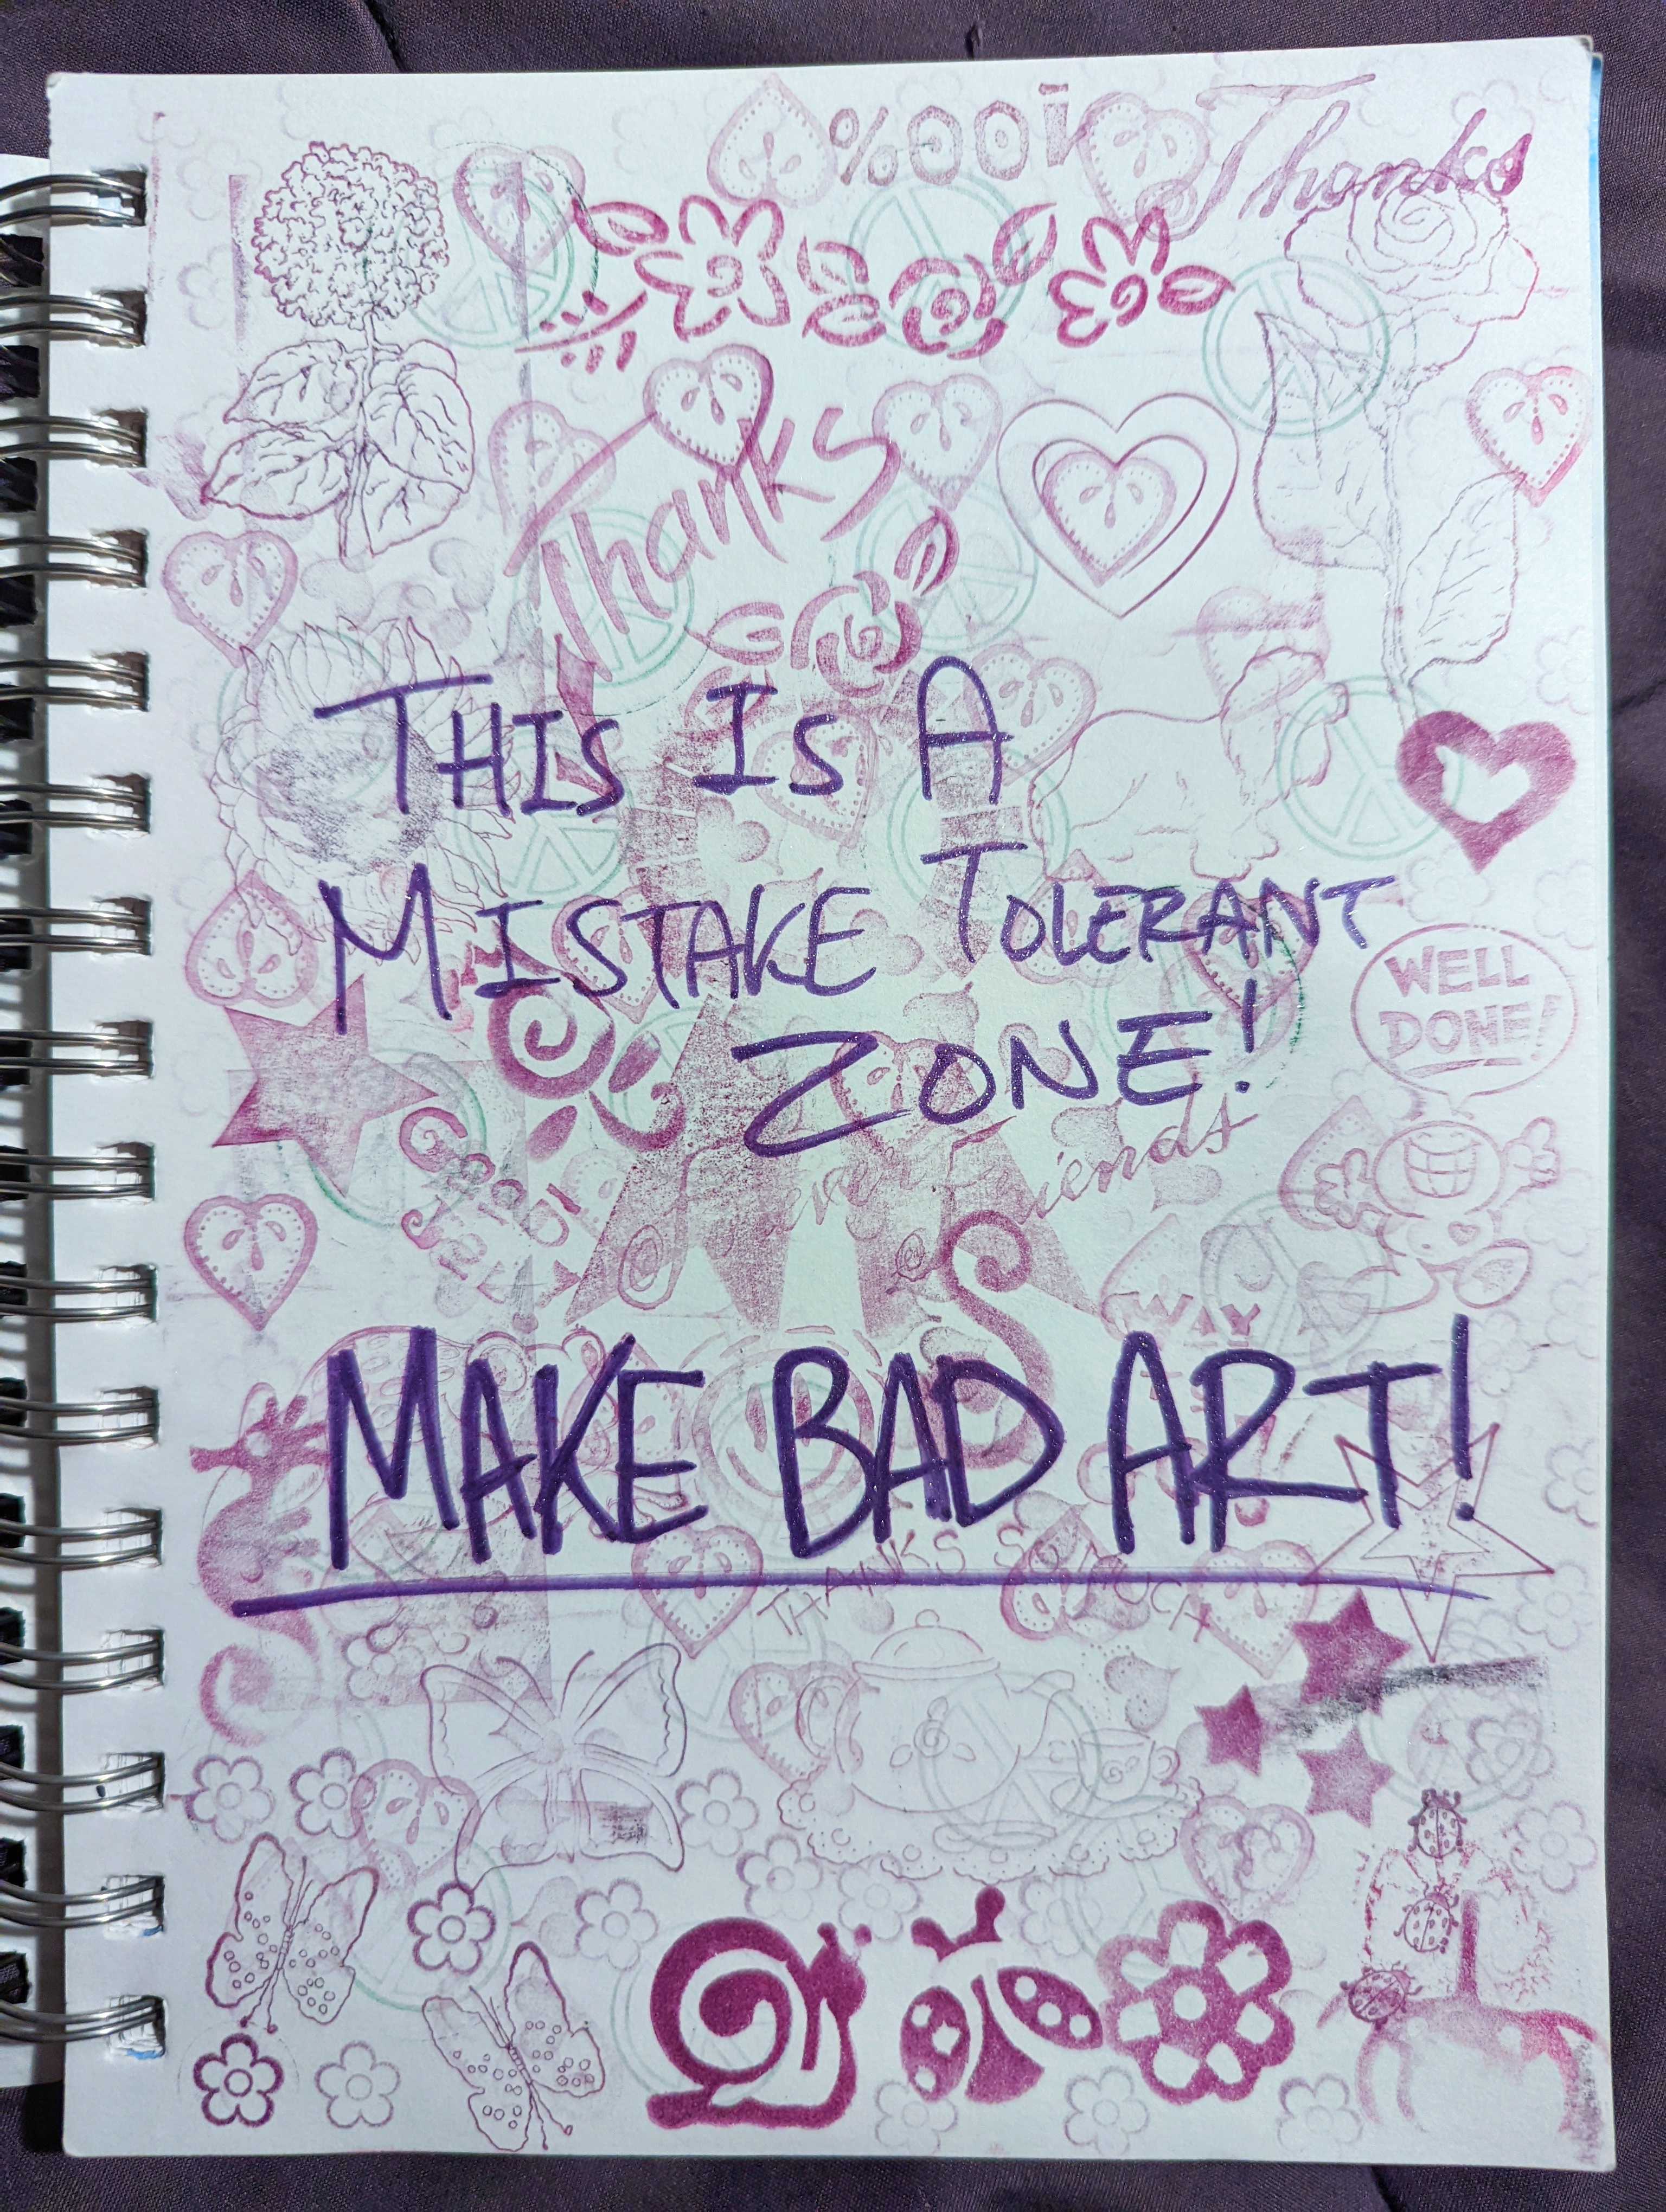 %001
Thanks
Thanks
THIS IS A
MISTAKE TOLERANT
ZONE!
WELL
DONE!
Forever Friends
WAY
MAKE BAD ART!
THANKS SO MUCH